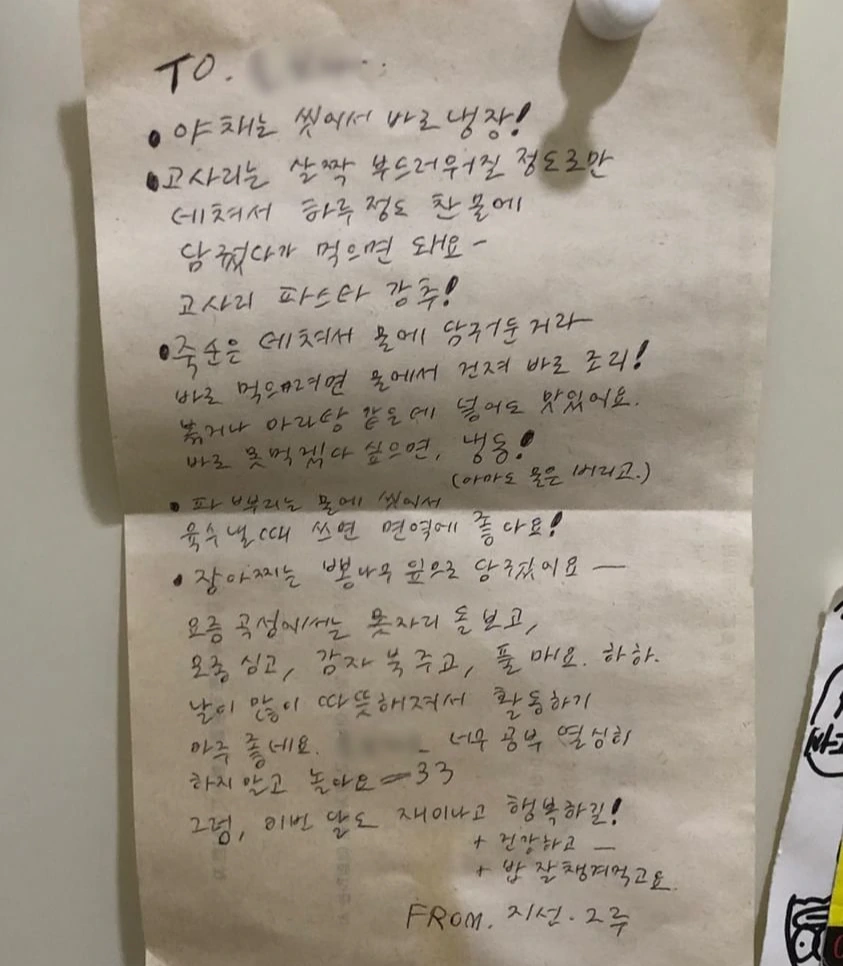 TO.
• 야채는 씻어서 바로 냉장!
• 고사리는 살짝 부드러워질 정도로만
데쳐서 하루 정도 찬물에
담궜다가 먹으면 돼요~
고사리 파스타 강추!
• 죽순은 데쳐서 물에 담궈둔거라
바로 먹으려면 물에서 건져 바로 조리!
볶거나 마라탕 같은데 넣어도 맛있어요.
바로 못먹겠다 싶으면, 냉동!
(아마도 물은 버리고.)
• 파 뿌리는 물에 씻어서
육수낼때 쓰면 면역에 좋아요!
• 장아찌는 뽕나무 잎으로 담궜어요 —
요즘 곡성에서는 못자리 돌보고,
모종 심고, 감자 북 주고, 풀 매요. 하하.
날이 많이 따뜻해져서 활동하기
아주 좋네요. 너무 공부 열심히
하지 말고 놀아요 ~33
그럼, 이번 달도 재미나고 행복하길!
+ 건강하고 —
+ 밥 잘챙겨먹고요.
FROM. 지선.